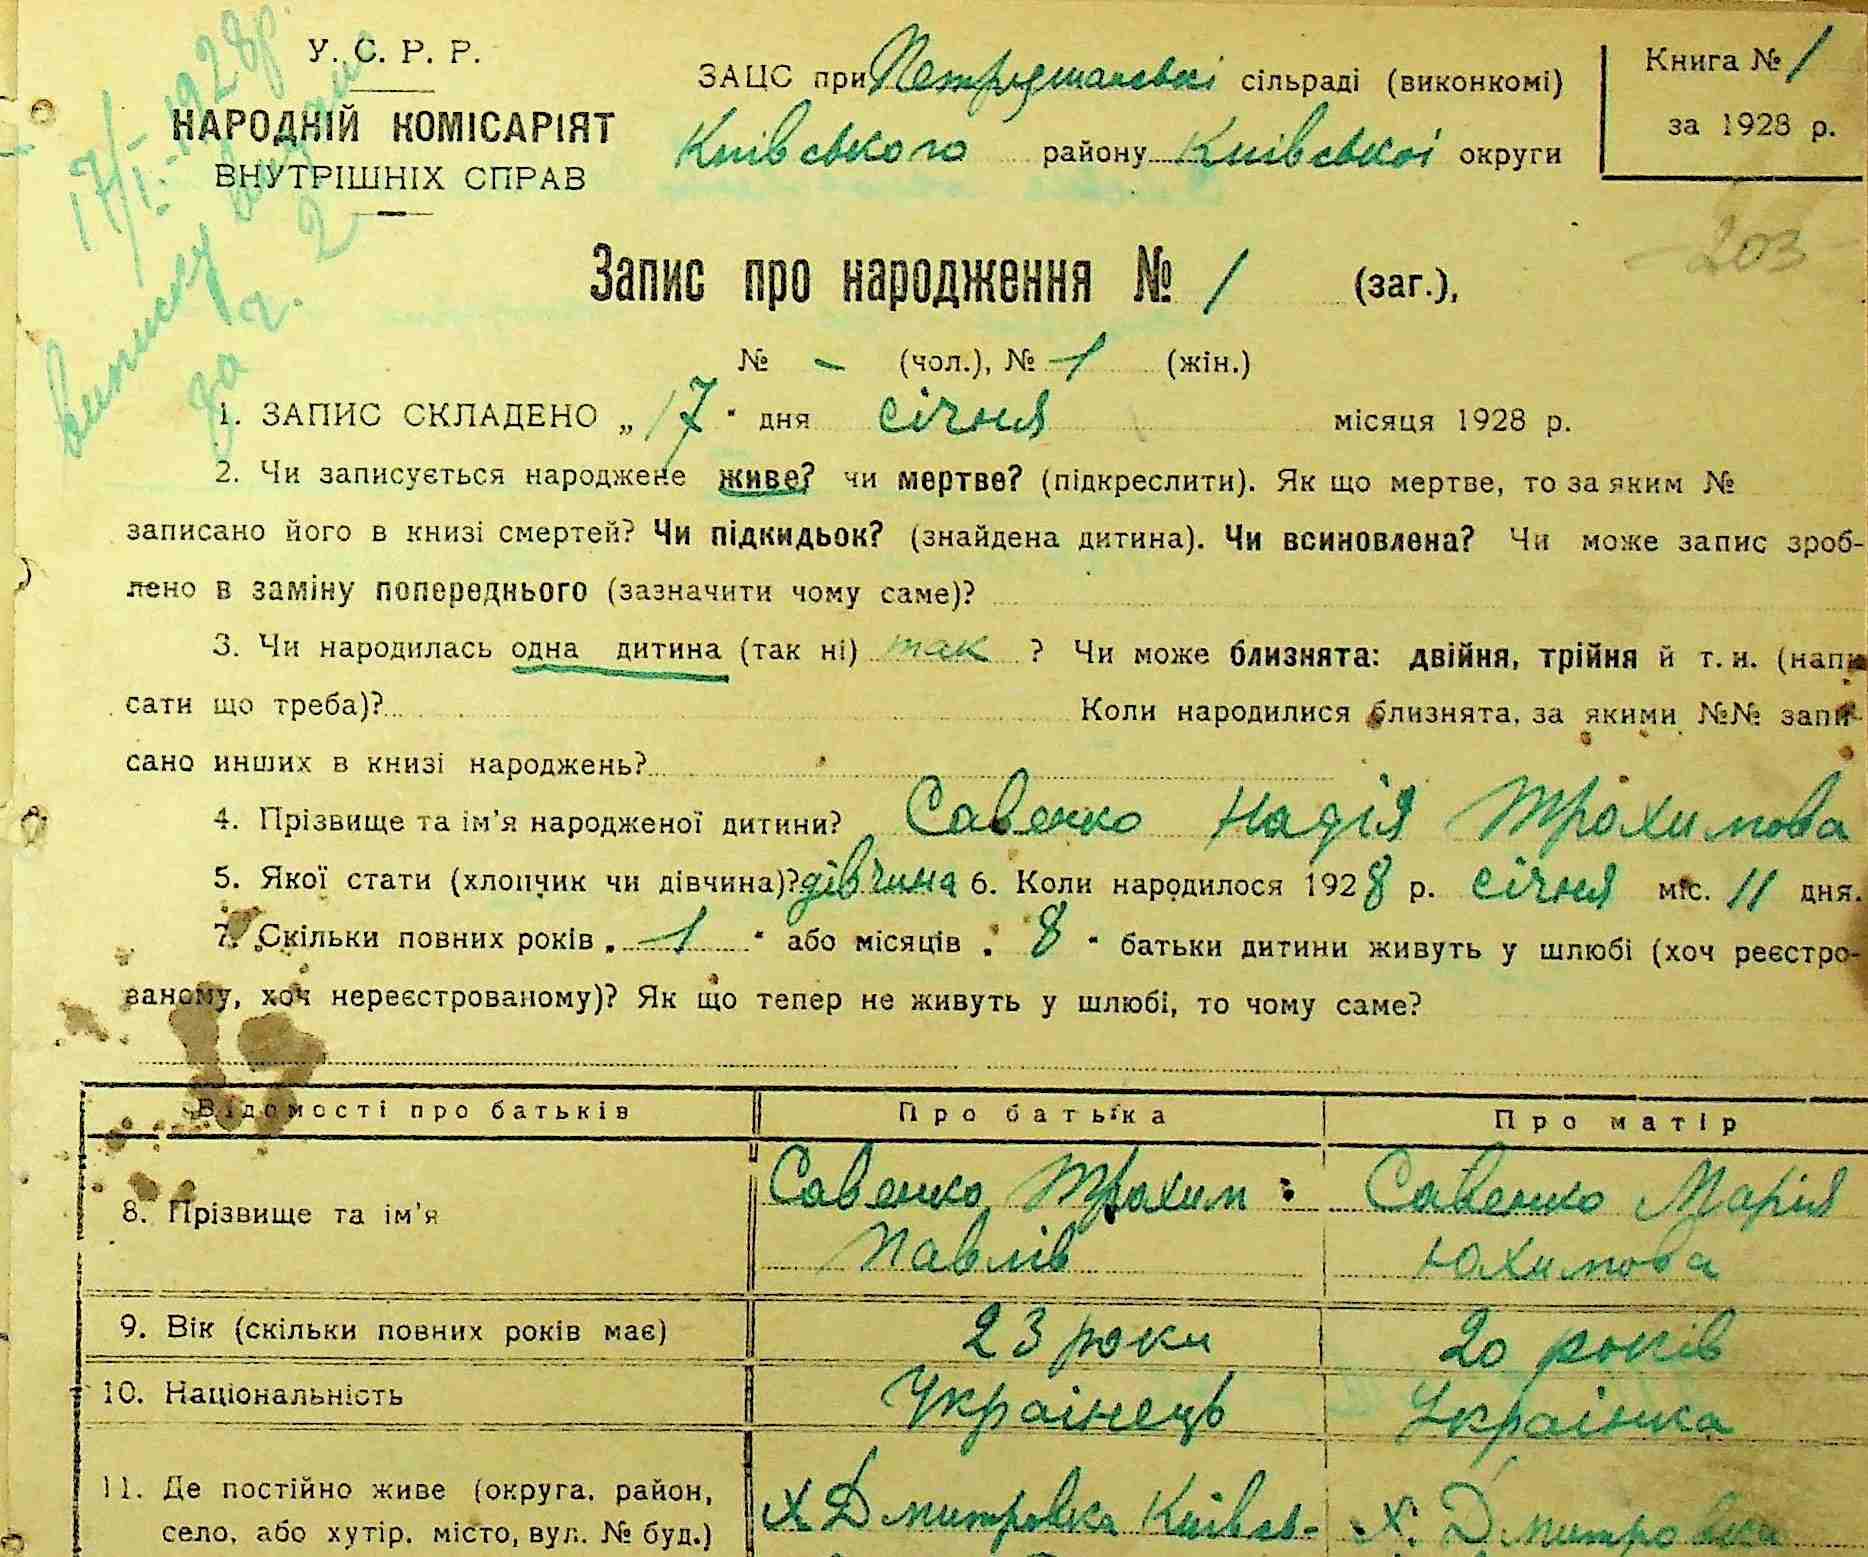 У. С. Р. Р.
НАРОДНІЙ КОМІСАРІЯТ
ВНУТРІШНІХ СПРАВ
17/I-1928р.
виписку видано
за ч. 2
ЗАЦС при сільраді (виконкомі)
Київського району Київської округи
Книга № 1
за 1928 р.
203
Запис про народження № 1 (заг.),
№ – (чол.), № 1 (жін.)
1. ЗАПИС СКЛАДЕНО „17" дня січня місяця 1928 р.
2. Чи записується народжене живе? чи мертве? (підкреслити). Як що мертве, то за яким №
записано його в книзі смертей? Чи підкидьок? (знайдена дитина). Чи всиновлена? Чи може запис зроб-
лено в заміну попереднього (зазначити чому саме)?
3. Чи народилась одна дитина (так ні) так ? Чи може близнята: двійня, трійня й т. и. (напи
сати що треба)? Коли народилися близнята, за якими №№ запи-
сано инших в книзі народжень?
4. Прізвище та ім'я народженої дитини? Савенко Надія Трохимова
5. Якої стати (хлопчик чи дівчина)? дівчина 6. Коли народилося 1928 р. січня міс. 11 дня.
7. Скільки повних років „1" або місяців „8" батьки дитини живуть у шлюбі (хоч реєстро-
ваному, хоч нереєстрованому)? Як що тепер не живуть у шлюбі, то чому саме?
Відомості про батьків Про батька Про матір
8. Прізвище та ім'я Савенко Трохим Савенко Марія
Павлів Юхимова
9. Вік (скільки повних років має) 23 роки 20 років
10. Національність Українець Українка
11. Де постійно живе (округа, район, Х Дмитровка Київсь- Х. Дмитровка
село, або хутір, місто, вул. № буд.)